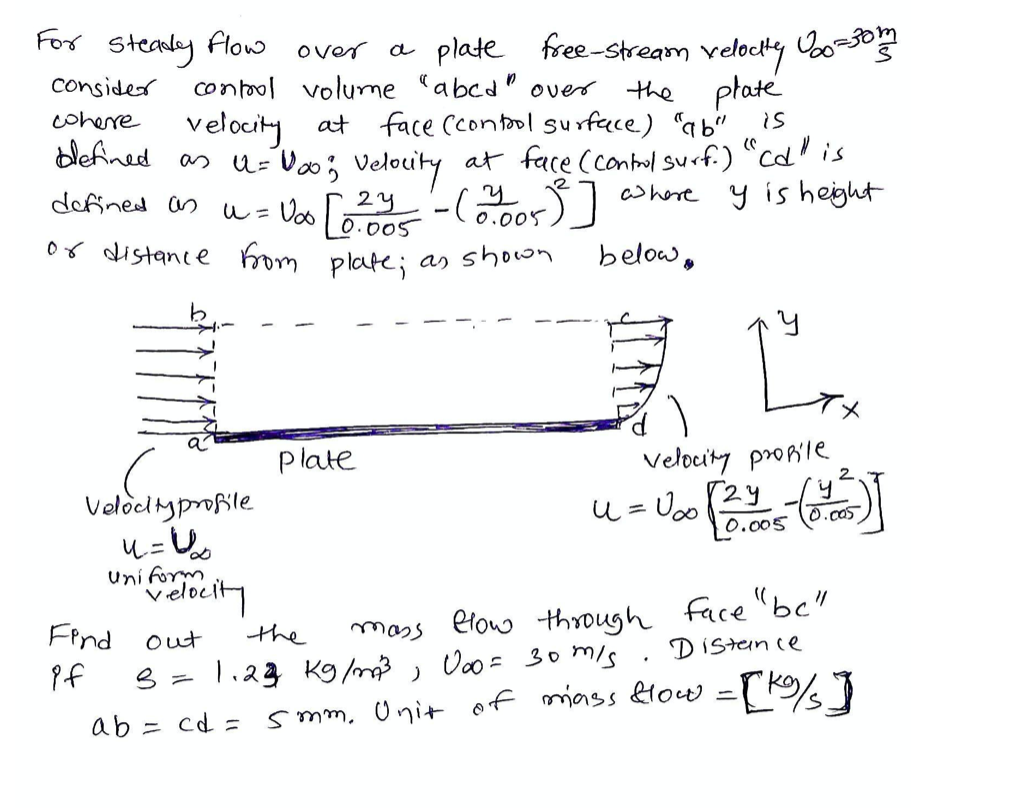 For steady flow over a plate free-stream velocity U∞=30 m/s
consider control volume "abcd" over the plate
where velocity at face (control surface) "ab" is
defined as u = U∞; velocity at face (control surf.) "cd" is
defined as u = U∞ [2y/0.005 - (y/0.005)²] where y is height
or distance from plate; as shown below.
b c y
x
a d
Plate
velocity profile
u = U∞ [2y/0.005 - (y²/0.005)]
Velocity profile
u = U∞
uniform
velocity
Find out the mass flow through face "bc"
if S = kg/m³, U∞ = 30 m/s. Distance
ab = cd = 5 mm. Unit of mass flow = [kg/s]